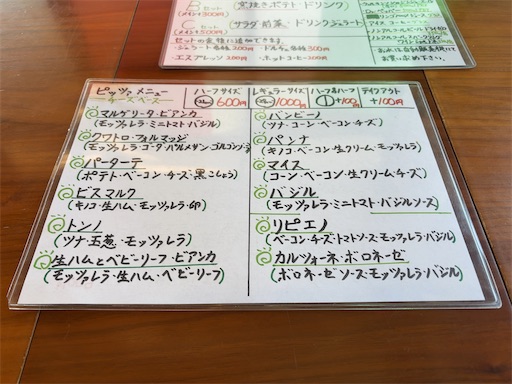 B セット (窯焼きポテト・ドリンク)
(メイン+300円)
C セット (サラダ・前菜・ドリンク・ジェラート)
(メイン+500円)
セットの食後に追加できます。
・ジェラート 各種 200円 ・ドルチェ 各種 300円
・エスプレッソ 200円 ・ホットコーヒー 200円
ピッツァメニュー チーズベース
ハーフサイズ 600円
レギュラーサイズ 1000円
ハーフ&ハーフ +100円
テイクアウト +100円
マルゲリータ・ビアンカ
(モッツァレラ・ミニトマト・バジル)
クワトロ・フォルマッジ
(モッツァレラ・ゴーダ・パルメザン・ゴルゴンゾ
パターテ
(ポテト・ベーコン・チーズ・黒こしょう)
ビスマルク
(キノコ・生ハム・モッツァレラ・卵)
トンノ
(ツナ・玉葱・モッツァレラ)
生ハムとベビーリーフ・ビアンカ
(モッツァレラ・生ハム・ベビーリーフ)
バンビーノ
(ツナ・コーン・ベーコン・チーズ)
パンナ
(キノコ・ベーコン・生クリーム・モッツァレラ)
マイス
(コーン・ベーコン・生クリーム・チーズ)
バジル
(モッツァレラ・ミニトマト・バジルソース)
リピエノ
(ベーコン・チーズ・トマトソース・モッツァレラ・バジル)
カルツォーネ・ボロネーゼ
(ボロネーゼソース・モッツァレラ・バジル)